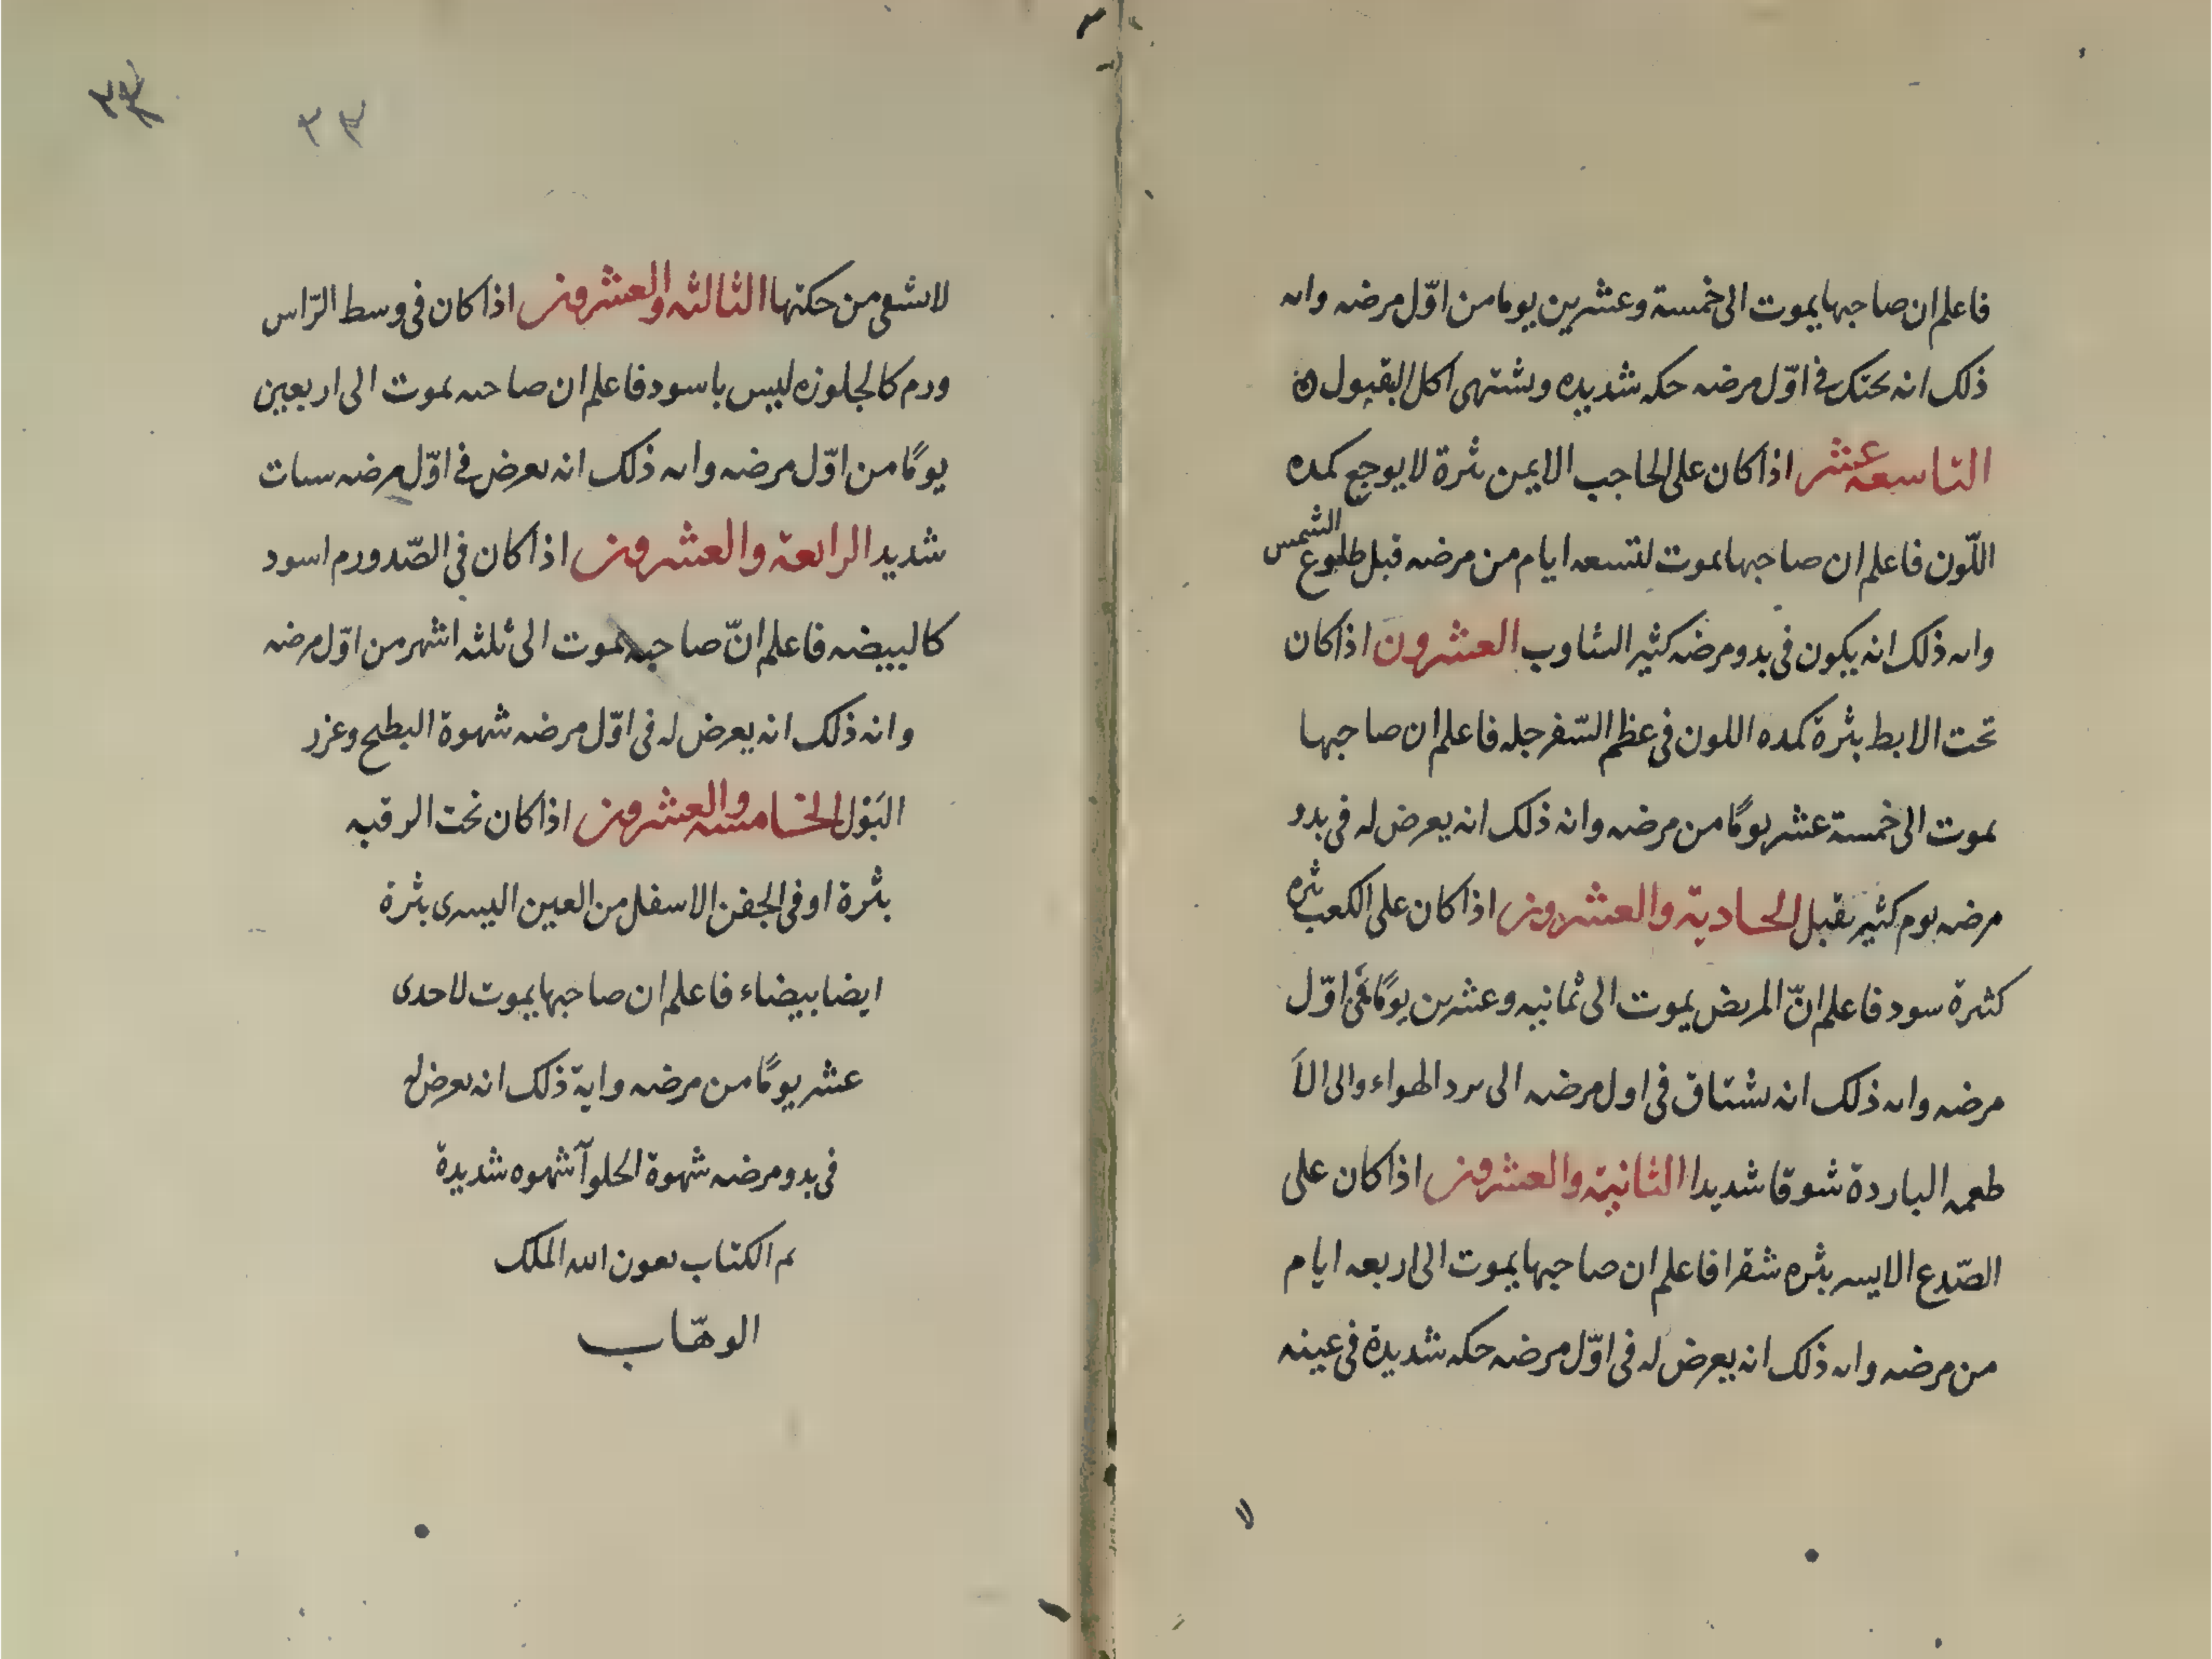 فاعلم ان صاحبها يموت الى خمسة وعشرين يوما من اوّل مرضه وايه
ذلك انه يحتك فى اوّل مرضه حكه شديده ويشتهى اكل البقول
التاسعه عشر اذا كان على الحاجب الايمن بثرة لا يوجع كمده
اللّون فاعلم ان صاحبها يموت لتسعه ايام من مرضه قبل طلوع الشمس
وايه ذلك انه يكون فى بدو مرضه كثير التثاوب العشرون اذا كان
تحت الابط بثرة كمده اللون فى عظم السّفرجله فاعلم ان صاحبها
يموت الى خمسة عشر يومًا من مرضه وانه ذلك انه يعرض له فى بدو
مرضه نوم كثير ثقيل الحادية والعشرون اذا كان على الكعب بثره
كثرة سود فاعلم انّ المريض يموت الى ثمانيه وعشرين يومًا فى اوّل
مرضه وايه ذلك انه يشتاق فى اول مرضه الى برد الهواء والى الاَ
طعمه الباردة شوقا شديدا الثانية والعشرون اذا كان على
الصّدع الايسر بثره شقرا فاعلم ان صاحبها يموت الى اربعه ايام
من مرضه وايه ذلك انه يعرض له فى اوّل مرضه حكه شديدة فى عينه
لا
٣٣
٣٣
لا يشفى من حكتها الثالثه والعشرون اذا كان فى وسط الرّاس
ورم كالجلوزه ليس باسود فاعلم ان صاحبه يموت الى اربعين
يومًا من اوّل مرضه وايه ذلك انه يعرض فى اوّل مرضه سبات
شديد الرابعة والعشرون اذا كان فى الصّدر ورم اسود
كالبيضه فاعلم انّ صاحبه يموت الى ثلثه اشهر من اوّل مرضه
وانه ذلك انه يعرض له فى اوّل مرضه شهوة البطيخ وغزر
البَوْل الخامسه والعشرون اذا كان تحت الرقبه
بثرة او فى الجفن الاسفل من العين اليسرى بثرة
ايضا بيضاء فاعلم ان صاحبها يموت لاحدى
عشر يومًا من مرضه واية ذلك انه يعرض له
فى بدو مرضه شهوة الحلوآ شهوه شديدة
تم الكتاب بعون الله الملك
الوهّاب